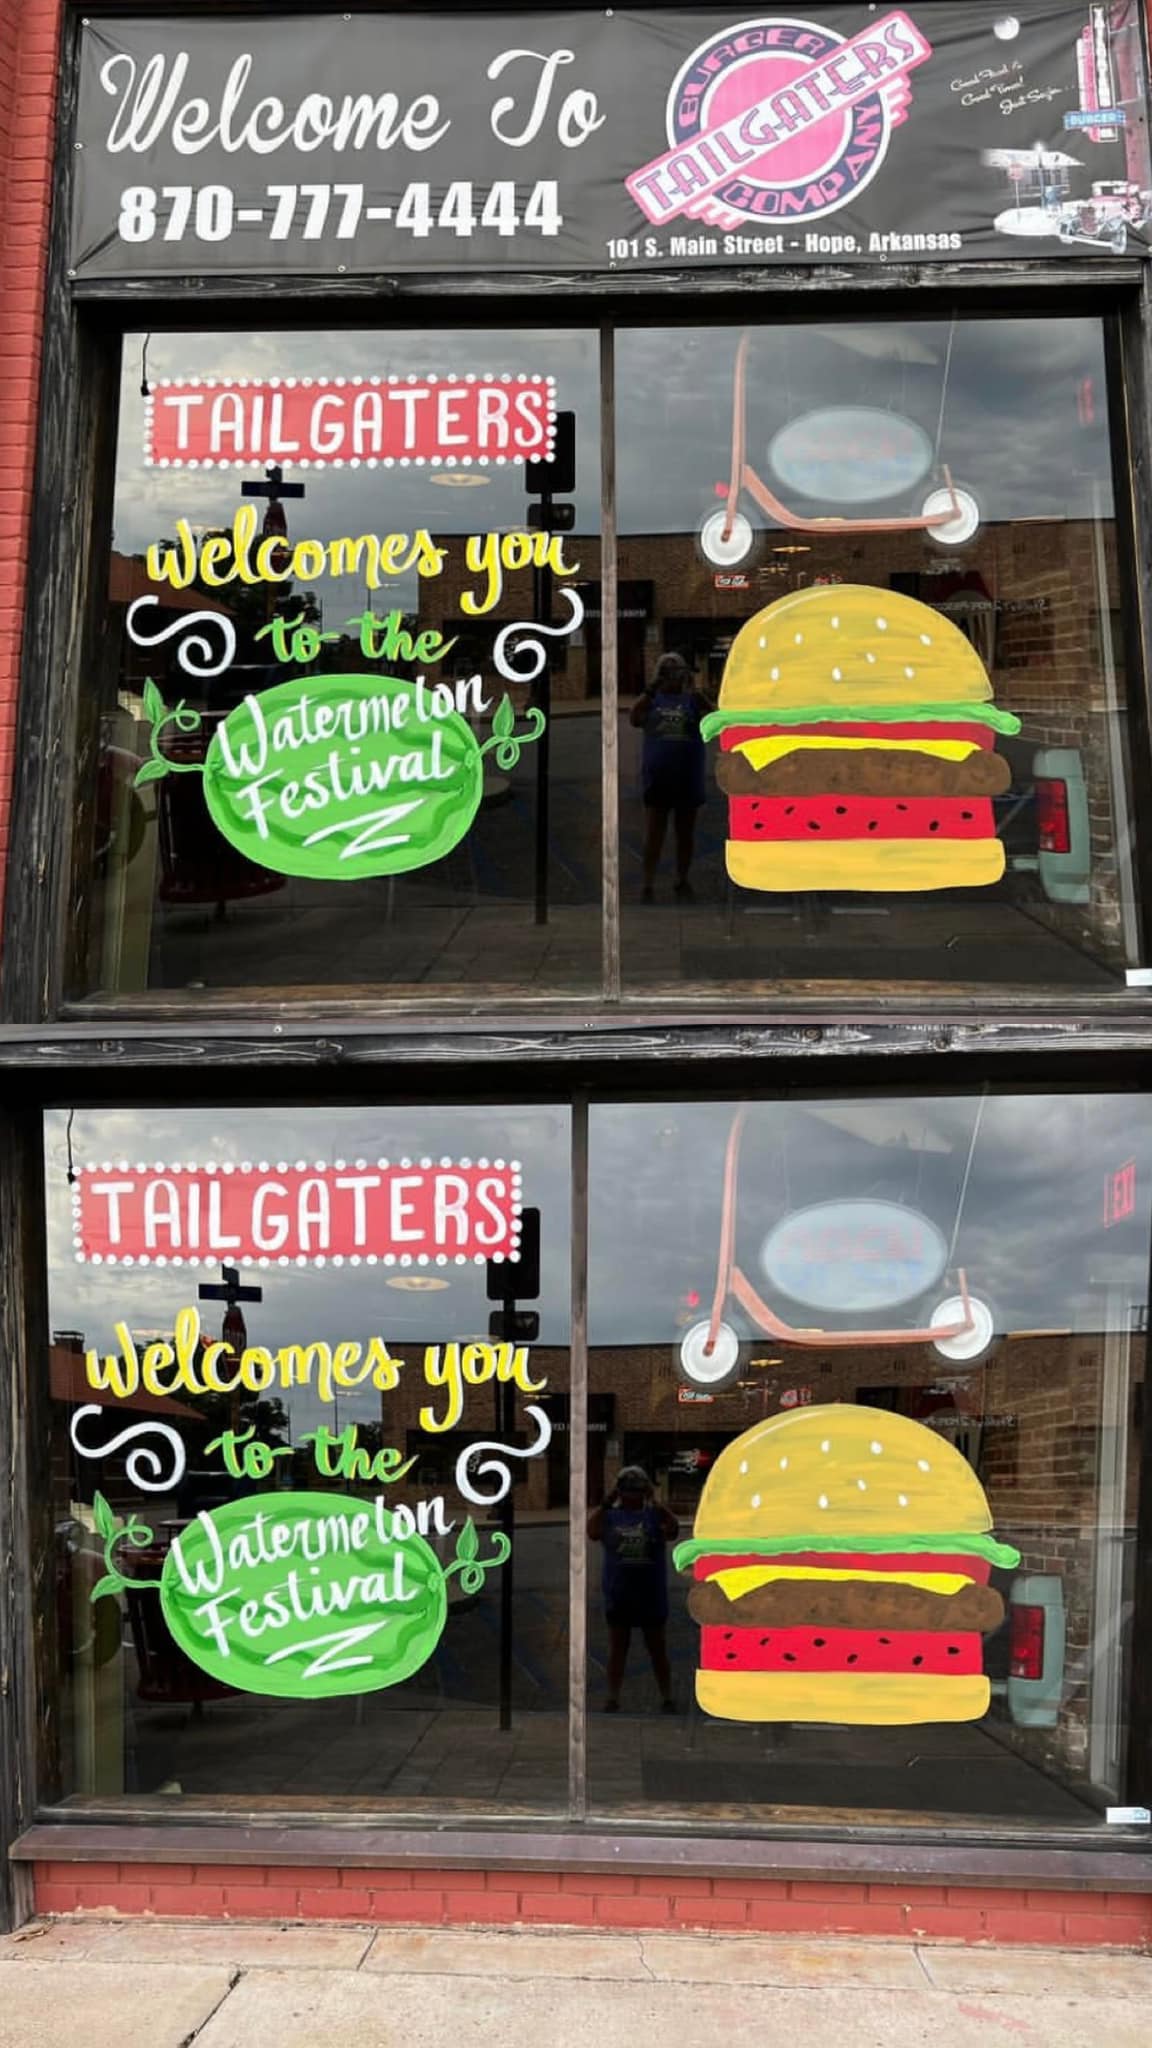 Welcome To
870-777-4444
BURGER
TAILGATERS
COMPANY
101 S. Main Street - Hope, Arkansas
Good Food &
Good Times!
Just Sayin...
BURGER
TAILGATERS
Welcomes you
to the
Watermelon
Festival
TAILGATERS
Welcomes you
to the
Watermelon
Festival
OPEN